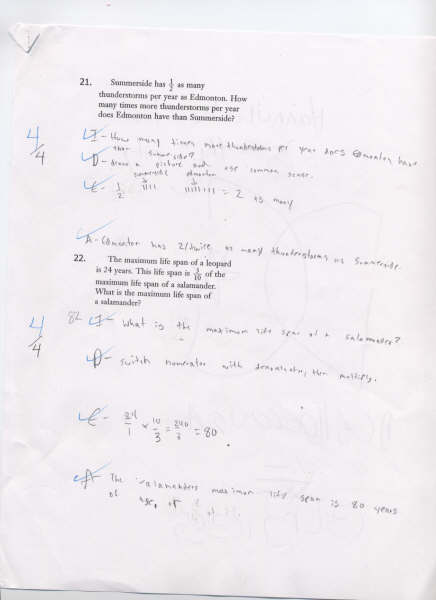 21. Summerside has 1/2 as many
thunderstorms per year as Edmonton. How
many times more thunderstorms per year
does Edmonton have than Summerside?
4/4
I - How many times more thunderstorms per year does Edmonton have
than Summerside?
D - draw a picture and use common sense.
Summerside Edmonton
C - 1/2 IIII IIIIIII = 2 as many
A - Edmonton has 2/twice as many thunderstorms as Summerside.
22. The maximum life span of a leopard
is 24 years. This life span is 3/10 of the
maximum life span of a salamander.
What is the maximum life span of
a salamander?
4/4
I - What is the maximum life span of a salamander?
D - switch numerator with denominator, then multiply.
C - 24/1 × 10/3 = 240/3 = 80
A - The salamanders maximum life span is 80 years
of age,